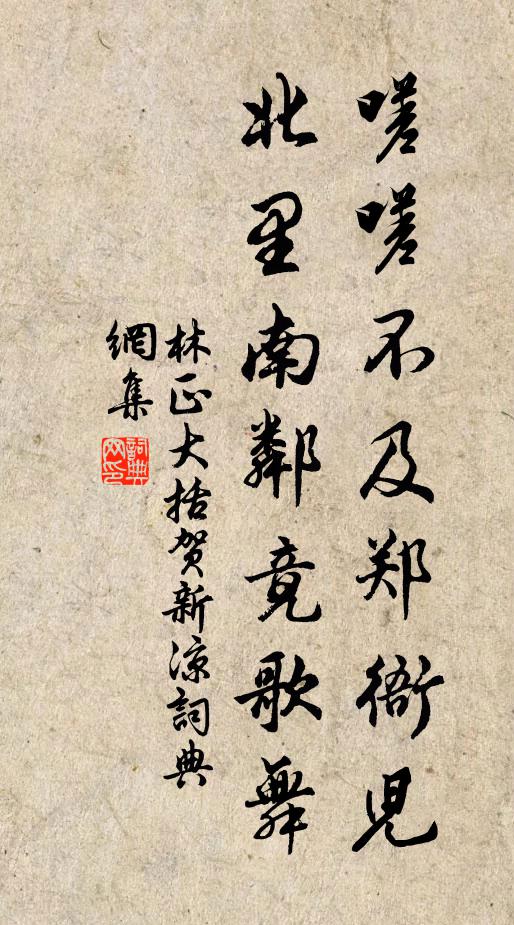 嗟嗟不及郑衙儿
北里南鄰竟歌舞
林正大括贺新凉詞典
網集
詞典網印